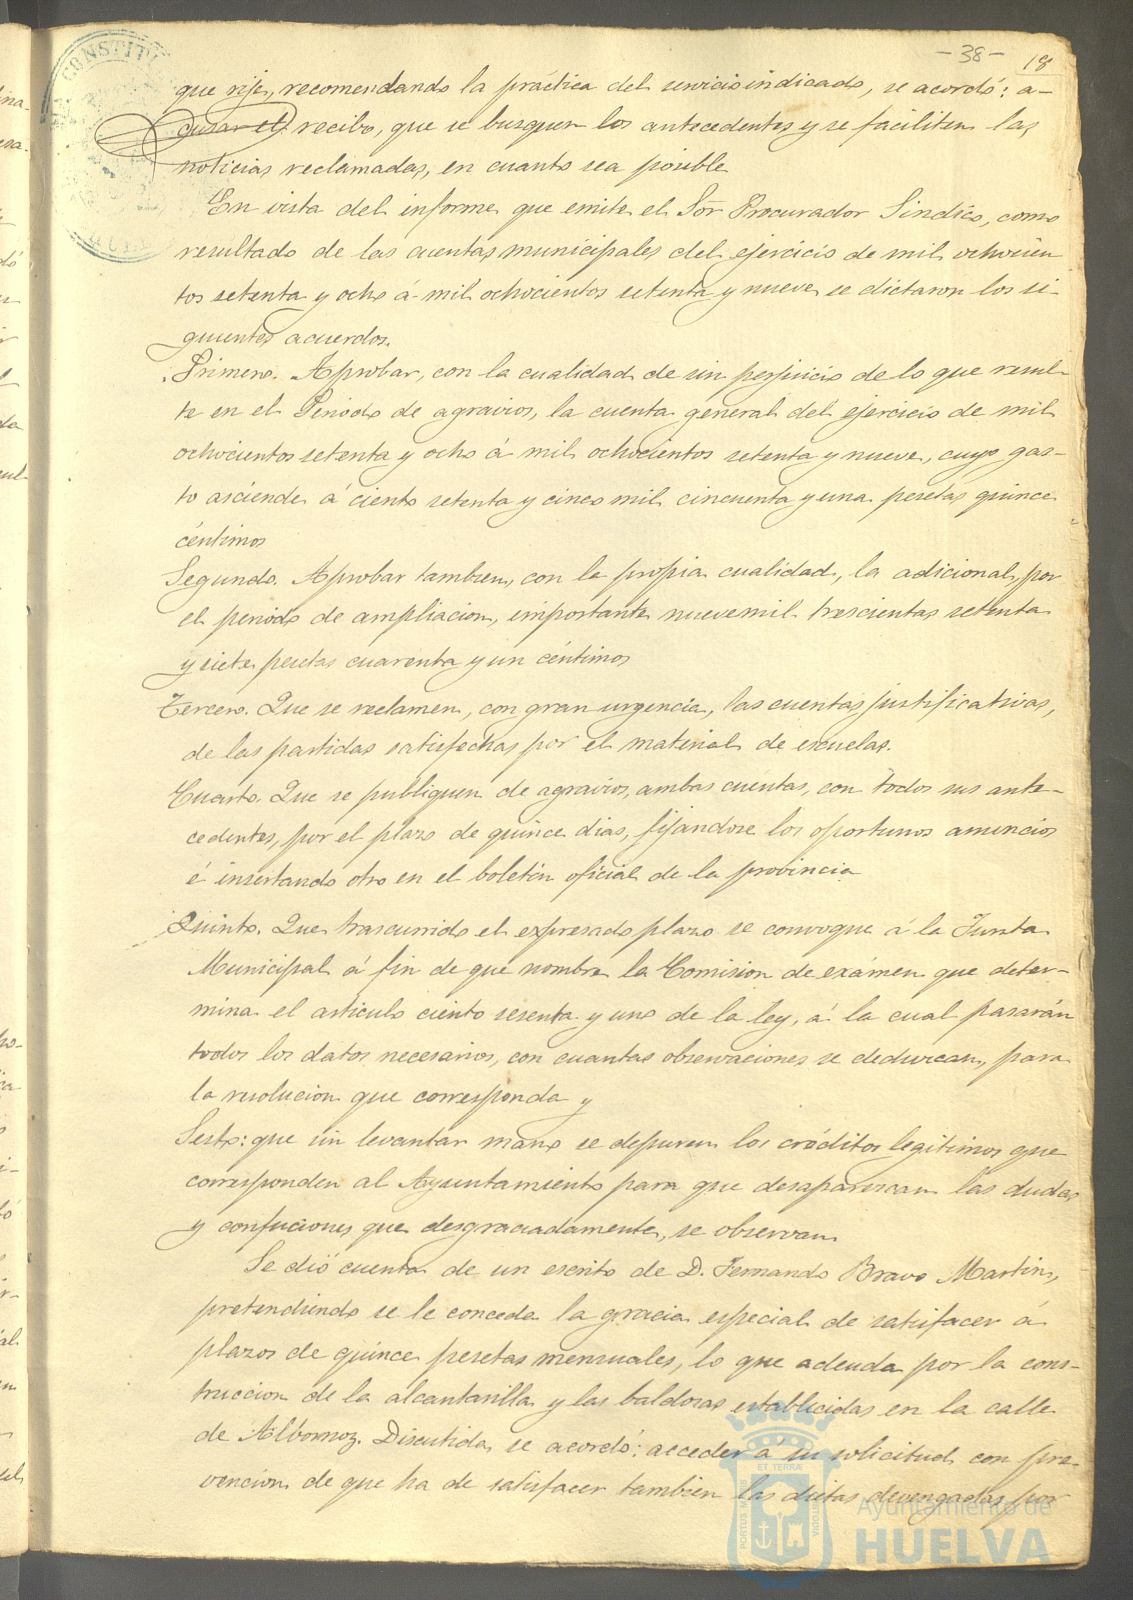 - 38 -
18
CONSTIT
que rije, recomendando la práctica del servicio indicado, se acordó: a-
cusar el recibo, que se busquen los antecedentes y se faciliten las
noticias reclamadas, en cuanto sea posible
En vista del informe que emite el Sor Procurador Sindico, como
resultado de las cuentas municipales del ejercicio de mil ochocien
tos setenta y ocho á mil ochocientos setenta y nueve se dictaron los si-
guientes acuerdos.
Primero. Aprobar, con la cualidad de sin perjuicio de lo que resul-
te en el Periodo de agravios, la cuenta general del ejercicio de mil
ochocientos setenta y ocho á mil ochocientos setenta y nueve, cuyo gas-
to asciende á ciento setenta y cinco mil cincuenta y una pesetas quince
céntimos
Segundo. Aprobar tambien, con la propia cualidad, la adicional, por
el periodo de ampliacion, importante nueve mil trescientas setenta
y siete pesetas cuarenta y un céntimos
Tercero. Que se reclamen, con gran urgencia, las cuentas justificativas,
de las partidas satisfechas por el material de escuelas.
Cuarto. Que se publiquen de agravios, ambas cuentas, con todos sus ante-
cedentes, por el plazo de quince dias, fijándose los oportunos anuncios
é insertando otro en el boletin oficial de la provincia
Quinto. Que trascurrido el expresado plazo se convoque á la Junta
Municipal á fin de que nombre la Comision de exámen que deter-
mina el articulo ciento sesenta y uno de la ley, á la cual pasarán
todos los datos necesarios, con cuantas observaciones se deduzcan, para
la resolucion que corresponda y
Sesto: que sin levantar mano se depuren los créditos legitimos que
corresponden al Ayuntamiento para que desaparezcan las dudas
y confuciones que desgraciadamente, se observan
Se dió cuenta de un escrito de D. Fernando Bravo Martin,
pretendiendo se le conceda la gracia especial de satisfacer á
plazos de quince pesetas mensuales, lo que adeuda por la cons-
truccion de la alcantarilla y las baldosas establecidas en la calle
de Albornoz. Discutida, se acordó: acceder á su solicitud con pre-
vencion de que ha de satisfacer tambien las dietas devengadas por
ET TERRÆ
PORTUS MARIS
CUSTODIA
Ayuntamiento de
HUELVA